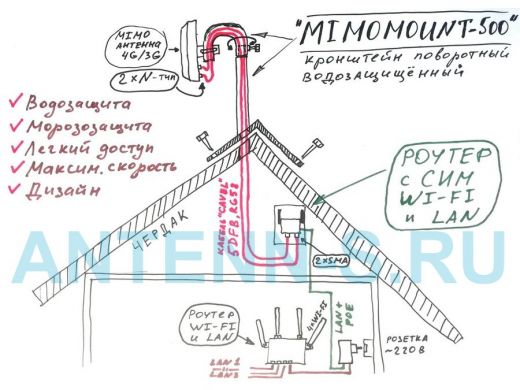 "MIMOMOUNT-500"
кронштейн поворотный
водозащищённый
MIMO
АНТЕННА
4G/3G
2xN-тип
✓ Водозащита
✓ Морозозащита
✓ Легкий доступ
✓ Максим. скорость
✓ Дизайн
РОУТЕР
с СИМ
WI-FI
и LAN
ЧЕРДАК
КАБЕЛЬ "CAVEL"
5DFB, RG58
2xSMA
ANTENN-S.RU
РОУТЕР
WI-FI
и LAN
4xWI-FI
LAN+
POE
РОЗЕТКА
~220В
LAN1